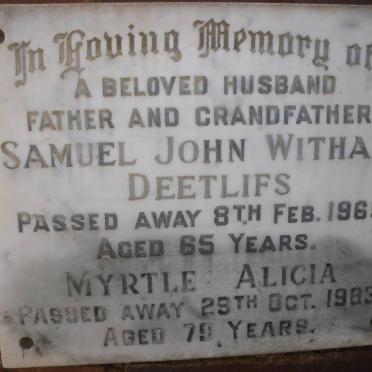 In Loving Memory of
A BELOVED HUSBAND
FATHER AND GRANDFATHER
SAMUEL JOHN
DEETLIFS
PASSED AWAY 8TH FEB.
AGED 65 YEARS.
MYRTLE ALICIA
PASSED AWAY 29TH OCT. 1983
AGED 79 YEARS.